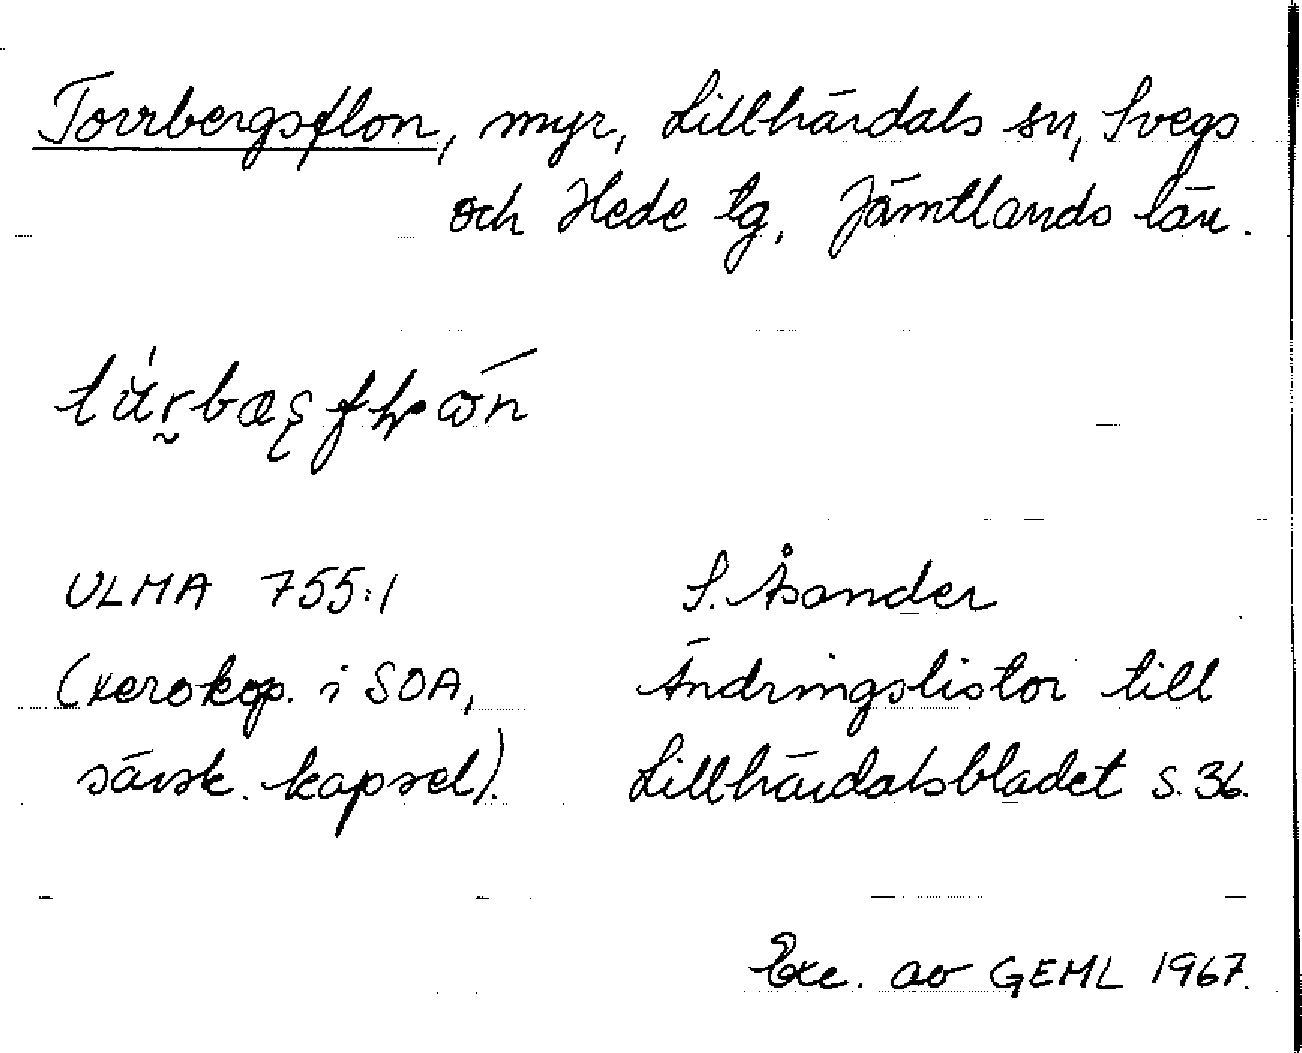 Torrbergsflon, myr, Lillhärdals sn, Svegs
och Hede tg, Jämtlands län.
ULMA 755:1
(xerokop. i SOA,
särsk. kapsel).
S. Åsander
Ändringslistor till
Lillhärdalsbladet s. 36.
Exc. av GEML 1967.